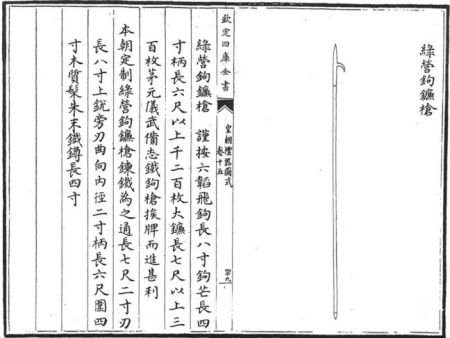 綠營鉤鐮槍
欽定四庫全書
皇朝禮器圖式
卷十五
綠營鉤鐮槍 謹按六韜飛鉤長八寸鉤芒長四
寸柄長六尺以上千二百枚大鐮長七尺以上三
百枚茅元儀武備志鐵鉤槍挨牌而進甚利
本朝定制綠營鉤鐮槍鍊鐵為之通長七尺二寸刃
長八寸上銳旁刃曲向內徑二寸柄長六尺圍四
寸木質髹朱末鐵鐏長四寸